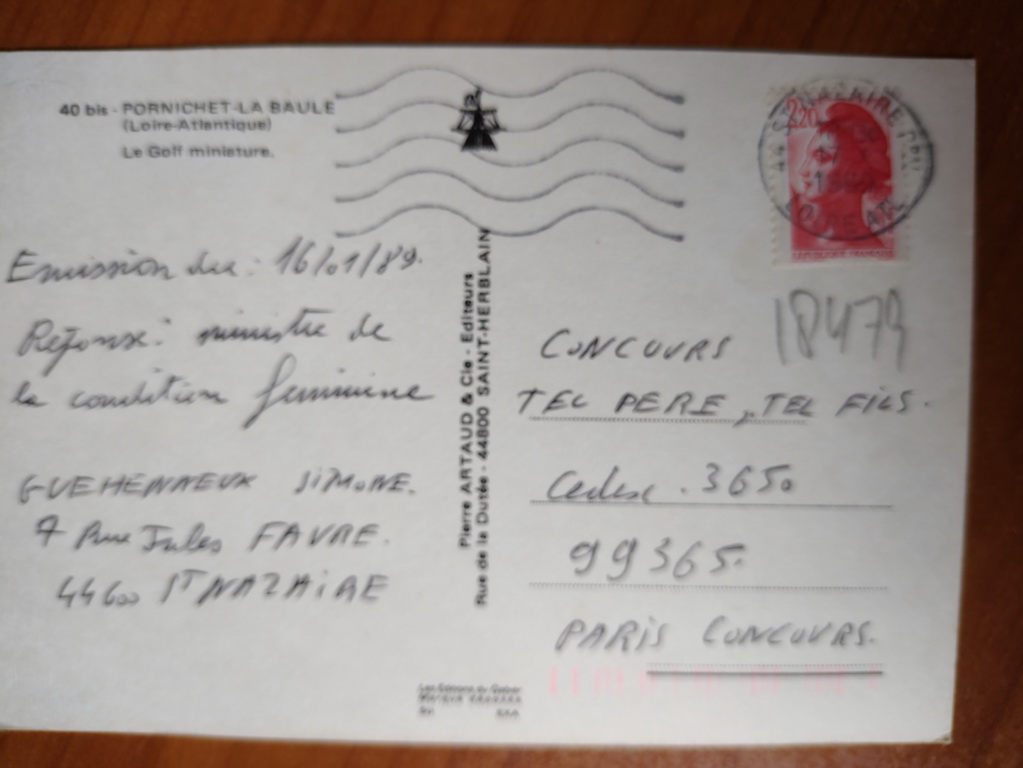 40 bis - PORNICHET-LA BAULE
(Loire-Atlantique)
Le Golf miniature.
Emission du : 16/01/89.
Réponse : ministre de
la condition feminine
GUEHENNEUX SIMONE.
7 Rue Jules FAVRE.
44600 ST NAZAIRE
Pierre ARTAUD & Cie - Editeurs
Rue de la Dutée - 44800 SAINT-HERBLAIN
2,20
44 ST NAZAIRE
LOIRE ATL
REPUBLIQUE FRANCAISE
18479
CONCOURS
TEL PERE, TEL FILS.
Cedex . 3650
99365.
PARIS CONCOURS.